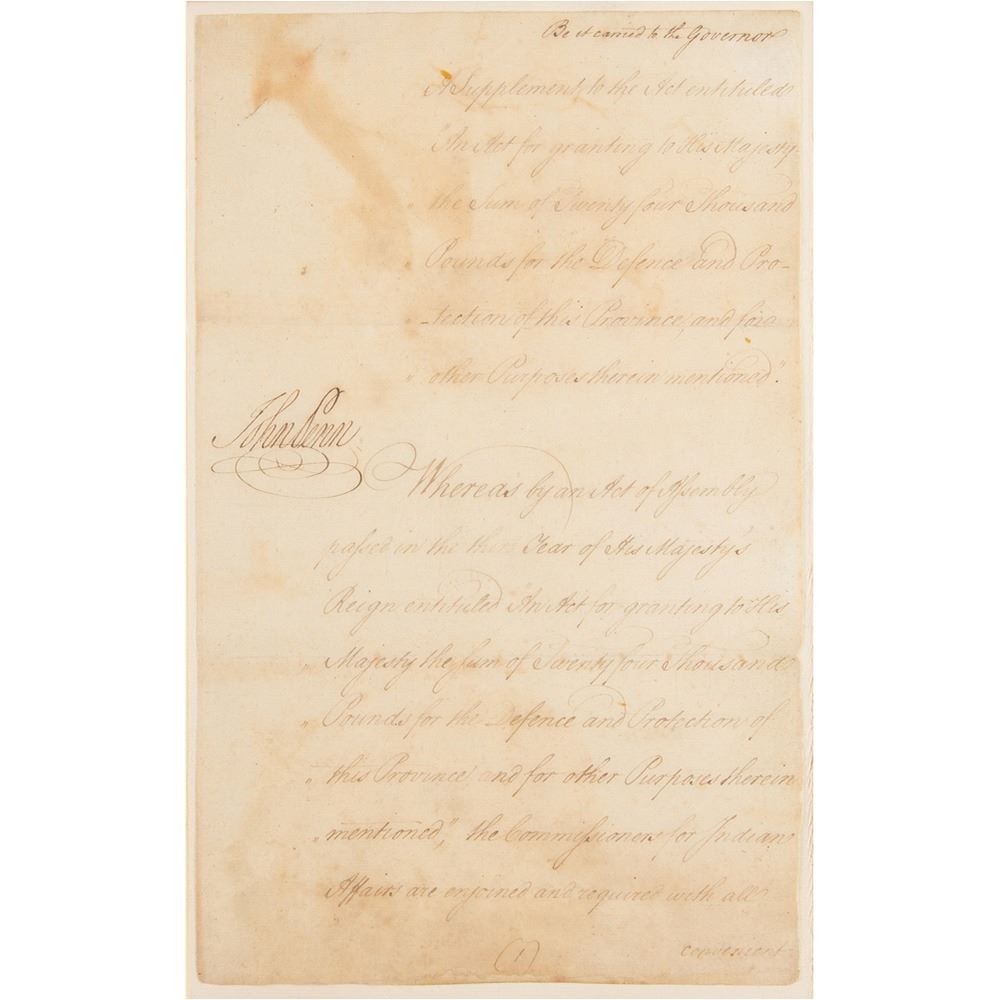 Be it carried to the Governor
A Supplement to the Act entituled
"An Act for granting to His Majesty
" the Sum of Twenty four Thousand
" Pounds for the Defence and Pro-
" -tection of this Province, and for
" other Purposes therein mentioned".
John Penn
Whereas by an Act of Assembly
passed in the third Year of His Majesty's
Reign entituled "An Act for granting to His
" Majesty the Sum of Twenty four Thousand
" Pounds for the Defence and Protection of
" this Province, and for other Purposes therein
" mentioned", the Commissioners for Indian
Affairs are enjoined and required with all
(1)
convenient